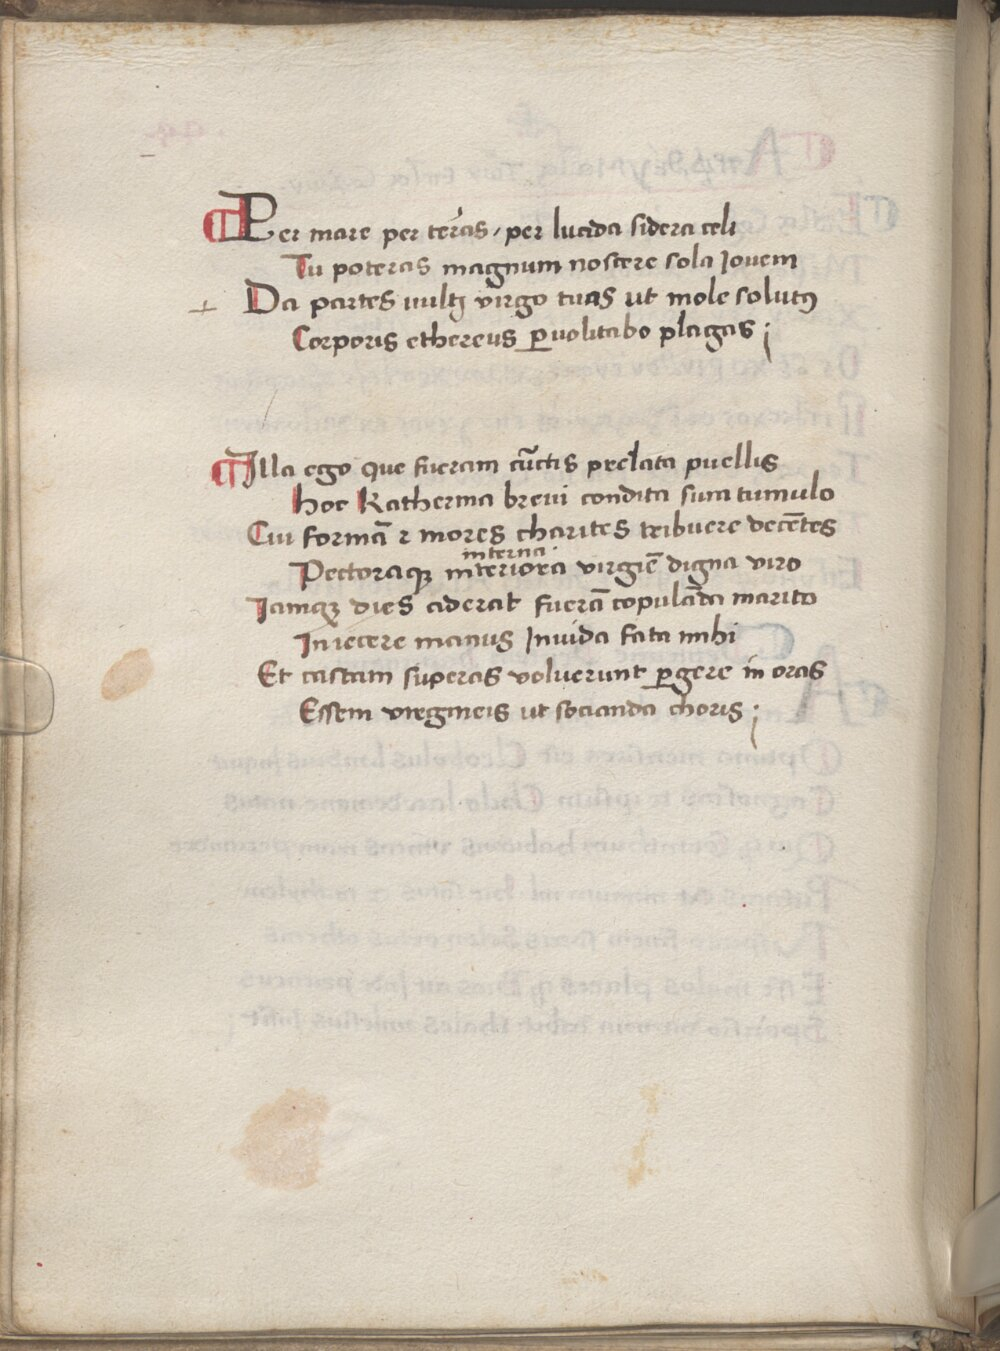 Per mare per terras, per lucida sidera celi
Tu poteras magnum noscere sola Iovem
+ Da partes vultꝰ virgo tuas ut mole solutꝰ
Corporis ethereus ꝑvolitabo plagas;
Illa ego que fueram cūctis prelata puellis
hoc Katherina brevi condita sum tumulo
Cui formā ⁊ mores charites tribuere decētes
interna
Pectoraqꝫ interiora virgīe digna viro
Iamqꝫ dies aderat fuerā copulāda marito
Iniecere manus Invida fata mihi
Et castam superas voluerunt ꝑgere in oras
Essem virgineis ut socianda choris;